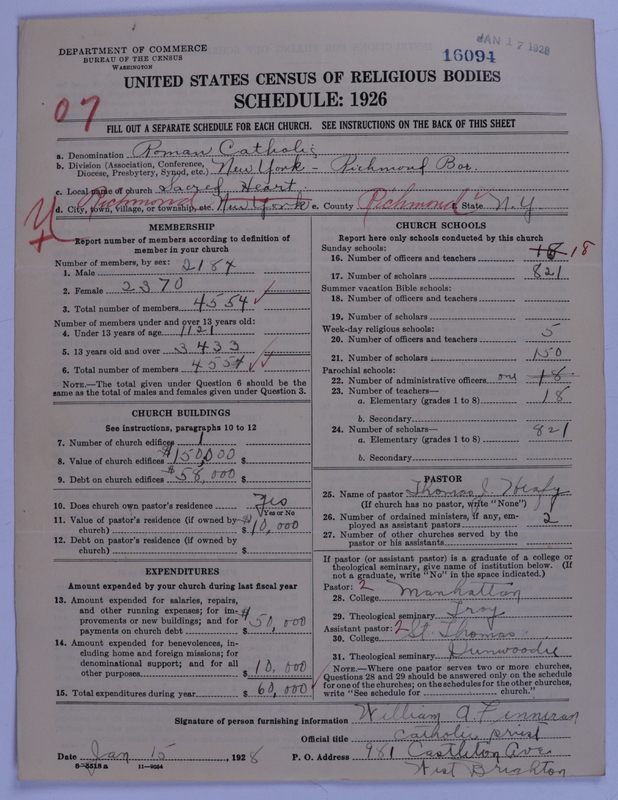 DEPARTMENT OF COMMERCE
BUREAU OF THE CENSUS
WASHINGTON
16094
JAN 17 1928
UNITED STATES CENSUS OF RELIGIOUS BODIES
SCHEDULE: 1926
07
FILL OUT A SEPARATE SCHEDULE FOR EACH CHURCH. SEE INSTRUCTIONS ON THE BACK OF THIS SHEET
a. Denomination Roman Catholic
b. Division (Association, Conference, Diocese, Presbytery, Synod, etc.) New York - Richmond Bor.
c. Local name of church Sacred Heart
d. City, town, village, or township, etc. Richmond New York e. County Richmond f. State N.Y.
MEMBERSHIP
Report number of members according to definition of
member in your church
Number of members, by sex:
1. Male 2184
2. Female 2370
3. Total number of members 4554
Number of members under and over 13 years old:
4. Under 13 years of age 1121
5. 13 years old and over 3433
6. Total number of members 4554
NOTE.—The total given under Question 6 should be the
same as the total of males and females given under Question 3.
CHURCH BUILDINGS
See instructions, paragraphs 10 to 12
7. Number of church edifices 1
8. Value of church edifices $150,000 $
9. Debt on church edifices $58,000 $
10. Does church own pastor's residence Yes
Yes or No
11. Value of pastor's residence (if owned by
church) $ 10,000
12. Debt on pastor's residence (if owned by
church) $
EXPENDITURES
Amount expended by your church during last fiscal year
13. Amount expended for salaries, repairs,
and other running expenses; for im-
provements or new buildings; and for
payments on church debt $ 50,000
14. Amount expended for benevolences, in-
cluding home and foreign missions; for
denominational support; and for all
other purposes $ 10,000
15. Total expenditures during year $ 60,000
CHURCH SCHOOLS
Report here only schools conducted by this church
Sunday schools:
16. Number of officers and teachers 18 18
17. Number of scholars 821
Summer vacation Bible schools:
18. Number of officers and teachers
19. Number of scholars
Week-day religious schools:
20. Number of officers and teachers 5
21. Number of scholars 150
Parochial schools:
22. Number of administrative officers one 18
23. Number of teachers—
a. Elementary (grades 1 to 8) 18
b. Secondary
24. Number of scholars—
a. Elementary (grades 1 to 8) 821
b. Secondary
PASTOR
25. Name of pastor Thomas J. Heafy
(If church has no pastor, write "None")
26. Number of ordained ministers, if any, em-
ployed as assistant pastors 2
27. Number of other churches served by the
pastor or his assistants
If pastor (or assistant pastor) is a graduate of a college or
theological seminary, give name of institution below. (If
not a graduate, write "No" in the space indicated.)
Pastor: 2
28. College Manhattan
29. Theological seminary Troy
Assistant pastor: 2
30. College St Thomas
31. Theological seminary Dunwoodie
NOTE.—Where one pastor serves two or more churches,
Questions 28 and 29 should be answered only on the schedule
for one of the churches; on the schedules for the other churches,
write "See schedule for church."
Signature of person furnishing information William A. Finneran
Official title Catholic priest
Date Jan 15, 1928 P. O. Address 981 Castleton Ave
West Brighton
8—5518 a 11—9034